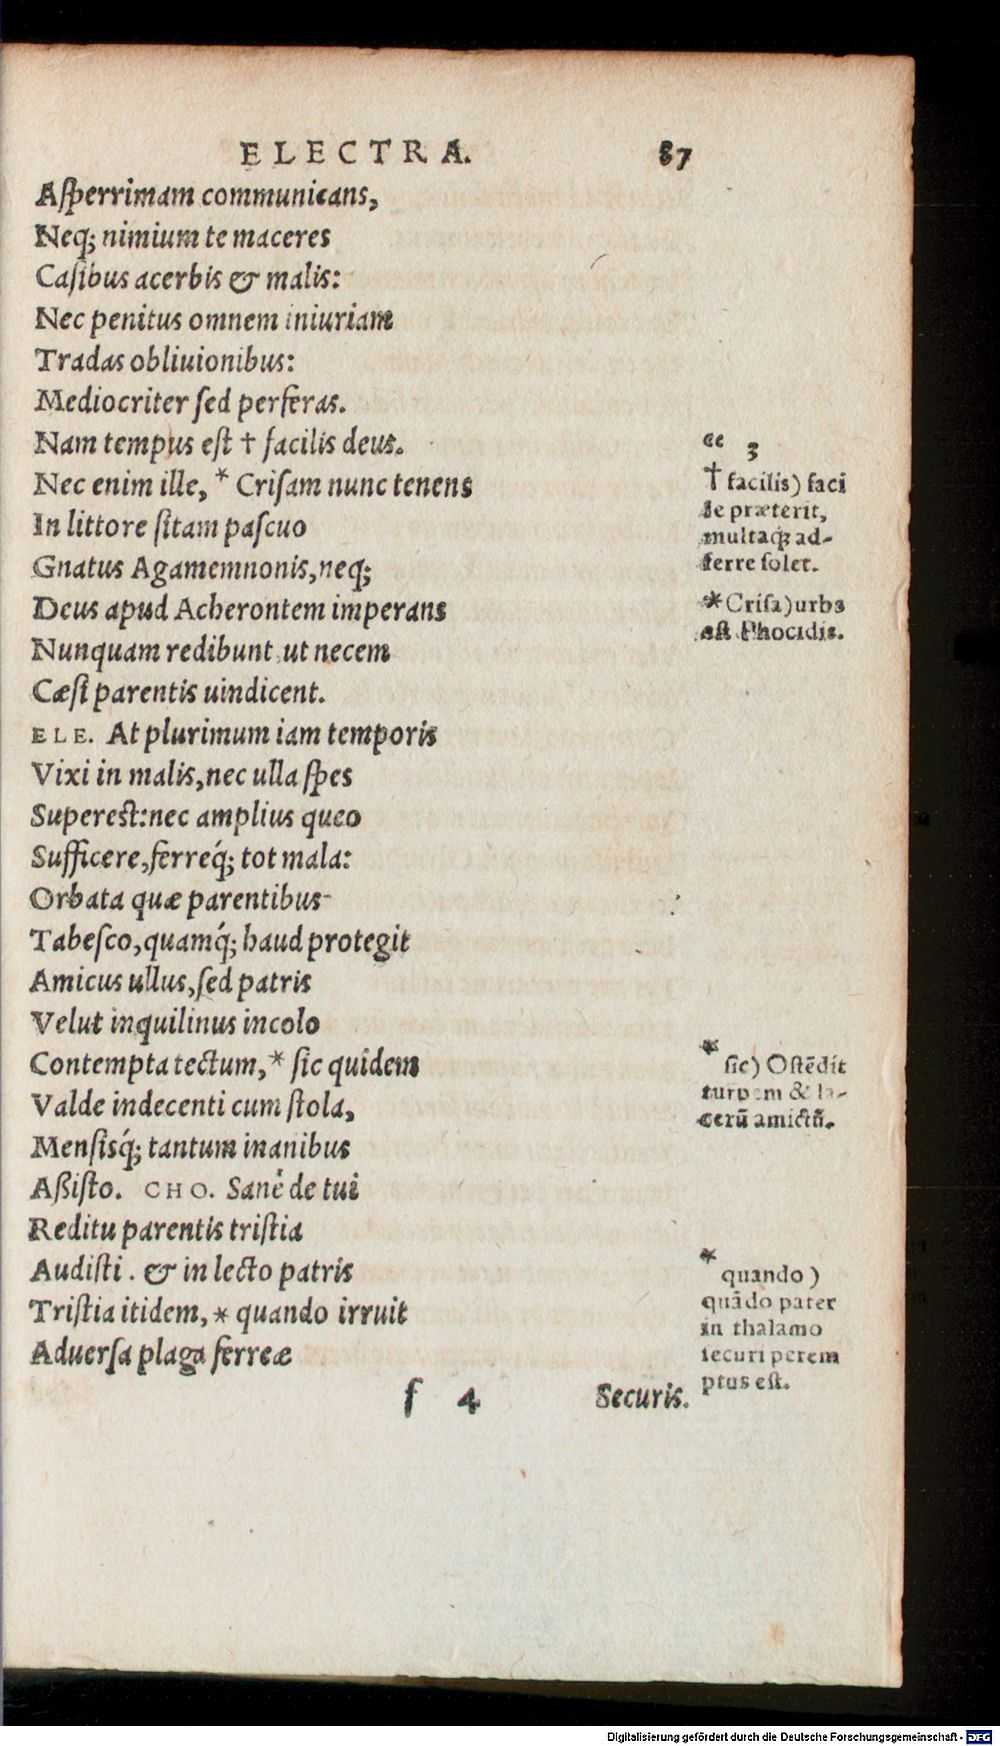 ELECTRA. 87
Aſperrimam communicans,
Neq; nimium te maceres
Caſibus acerbis & malis:
Nec penitus omnem iniuriam
Tradas obliuionibus:
Mediocriter ſed perferas.
Nam tempus eſt † facilis deus.
Nec enim ille, * Criſam nunc tenens
In littore ſitam paſcuo
Gnatus Agamemnonis, neq;
Deus apud Acherontem imperans
Nunquam redibunt ut necem
Cæſi parentis uindicent.
ELE. At plurimum iam temporis
Vixi in malis, nec ulla ſpes
Supereſt: nec amplius queo
Sufficere, ferreq́; tot mala:
Orbata quæ parentibus
Tabeſco, quamq́; haud protegit
Amicus ullus, ſed patris
Velut inquilinus incolo
Contempta tectum, * ſic quidem
Valde indecenti cum ſtola,
Menſisq́; tantum inanibus
Aßiſto. CHO. Sanè de tui
Reditu parentis triſtia
Audiſti. & in lecto patris
Triſtia itidem, * quando irruit
Aduerſa plaga ferreæ
f 4 Securis.
“ 3
† facilis) faci
le præterit,
multaq; ad-
ferre ſolet.
* Criſa) urbs
eſt Phocidis.
*
ſic) Oſtēdit
turpem & la-
cerū amictū.
*
quando)
quādo pater
in thalamo
ſecuri perem
ptus eſt.
Digitalisierung gefördert durch die Deutsche Forschungsgemeinschaft - DFG